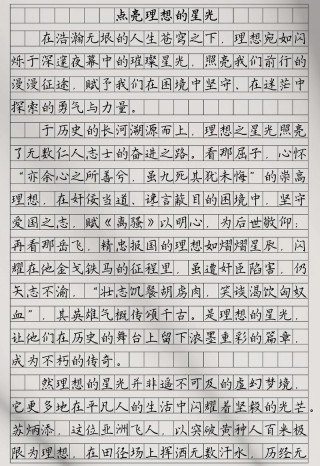 点亮理想的星光
在浩瀚无垠的人生苍穹之下，理想宛如闪
烁于深邃夜幕中的璀璨星光，照亮我们前行的
漫漫征途，赋予我们在困境中坚守、在迷茫中
探索的勇气与力量。
于历史的长河溯源而上，理想之星光照亮
了无数仁人志士的奋进之路。看那屈子，心怀
“亦余心之所善兮，虽九死其犹未悔”的崇高
理想，在奸佞当道、谗言蔽目的困境中，坚守
爱国之志，赋《离骚》以明心，为后世敬仰；
再看那岳飞，精忠报国的理想如熠熠星辰，闪
耀在他金戈铁马的征程里，虽遭奸臣陷害，仍
矢志不渝，“壮志饥餐胡虏肉，笑谈渴饮匈奴
血”，其英雄气概传颂千古。是理想的星光，
让他们在历史的舞台上留下浓墨重彩的篇章，
成为不朽的传奇。
然理想的星光并非遥不可及的虚幻梦境，
它更多地在平凡人的生活中闪耀着坚毅的光芒。
苏炳添，这位亚洲飞人，以突破黄种人百米极
限为理想，在田径场上挥洒无数汗水，历经无